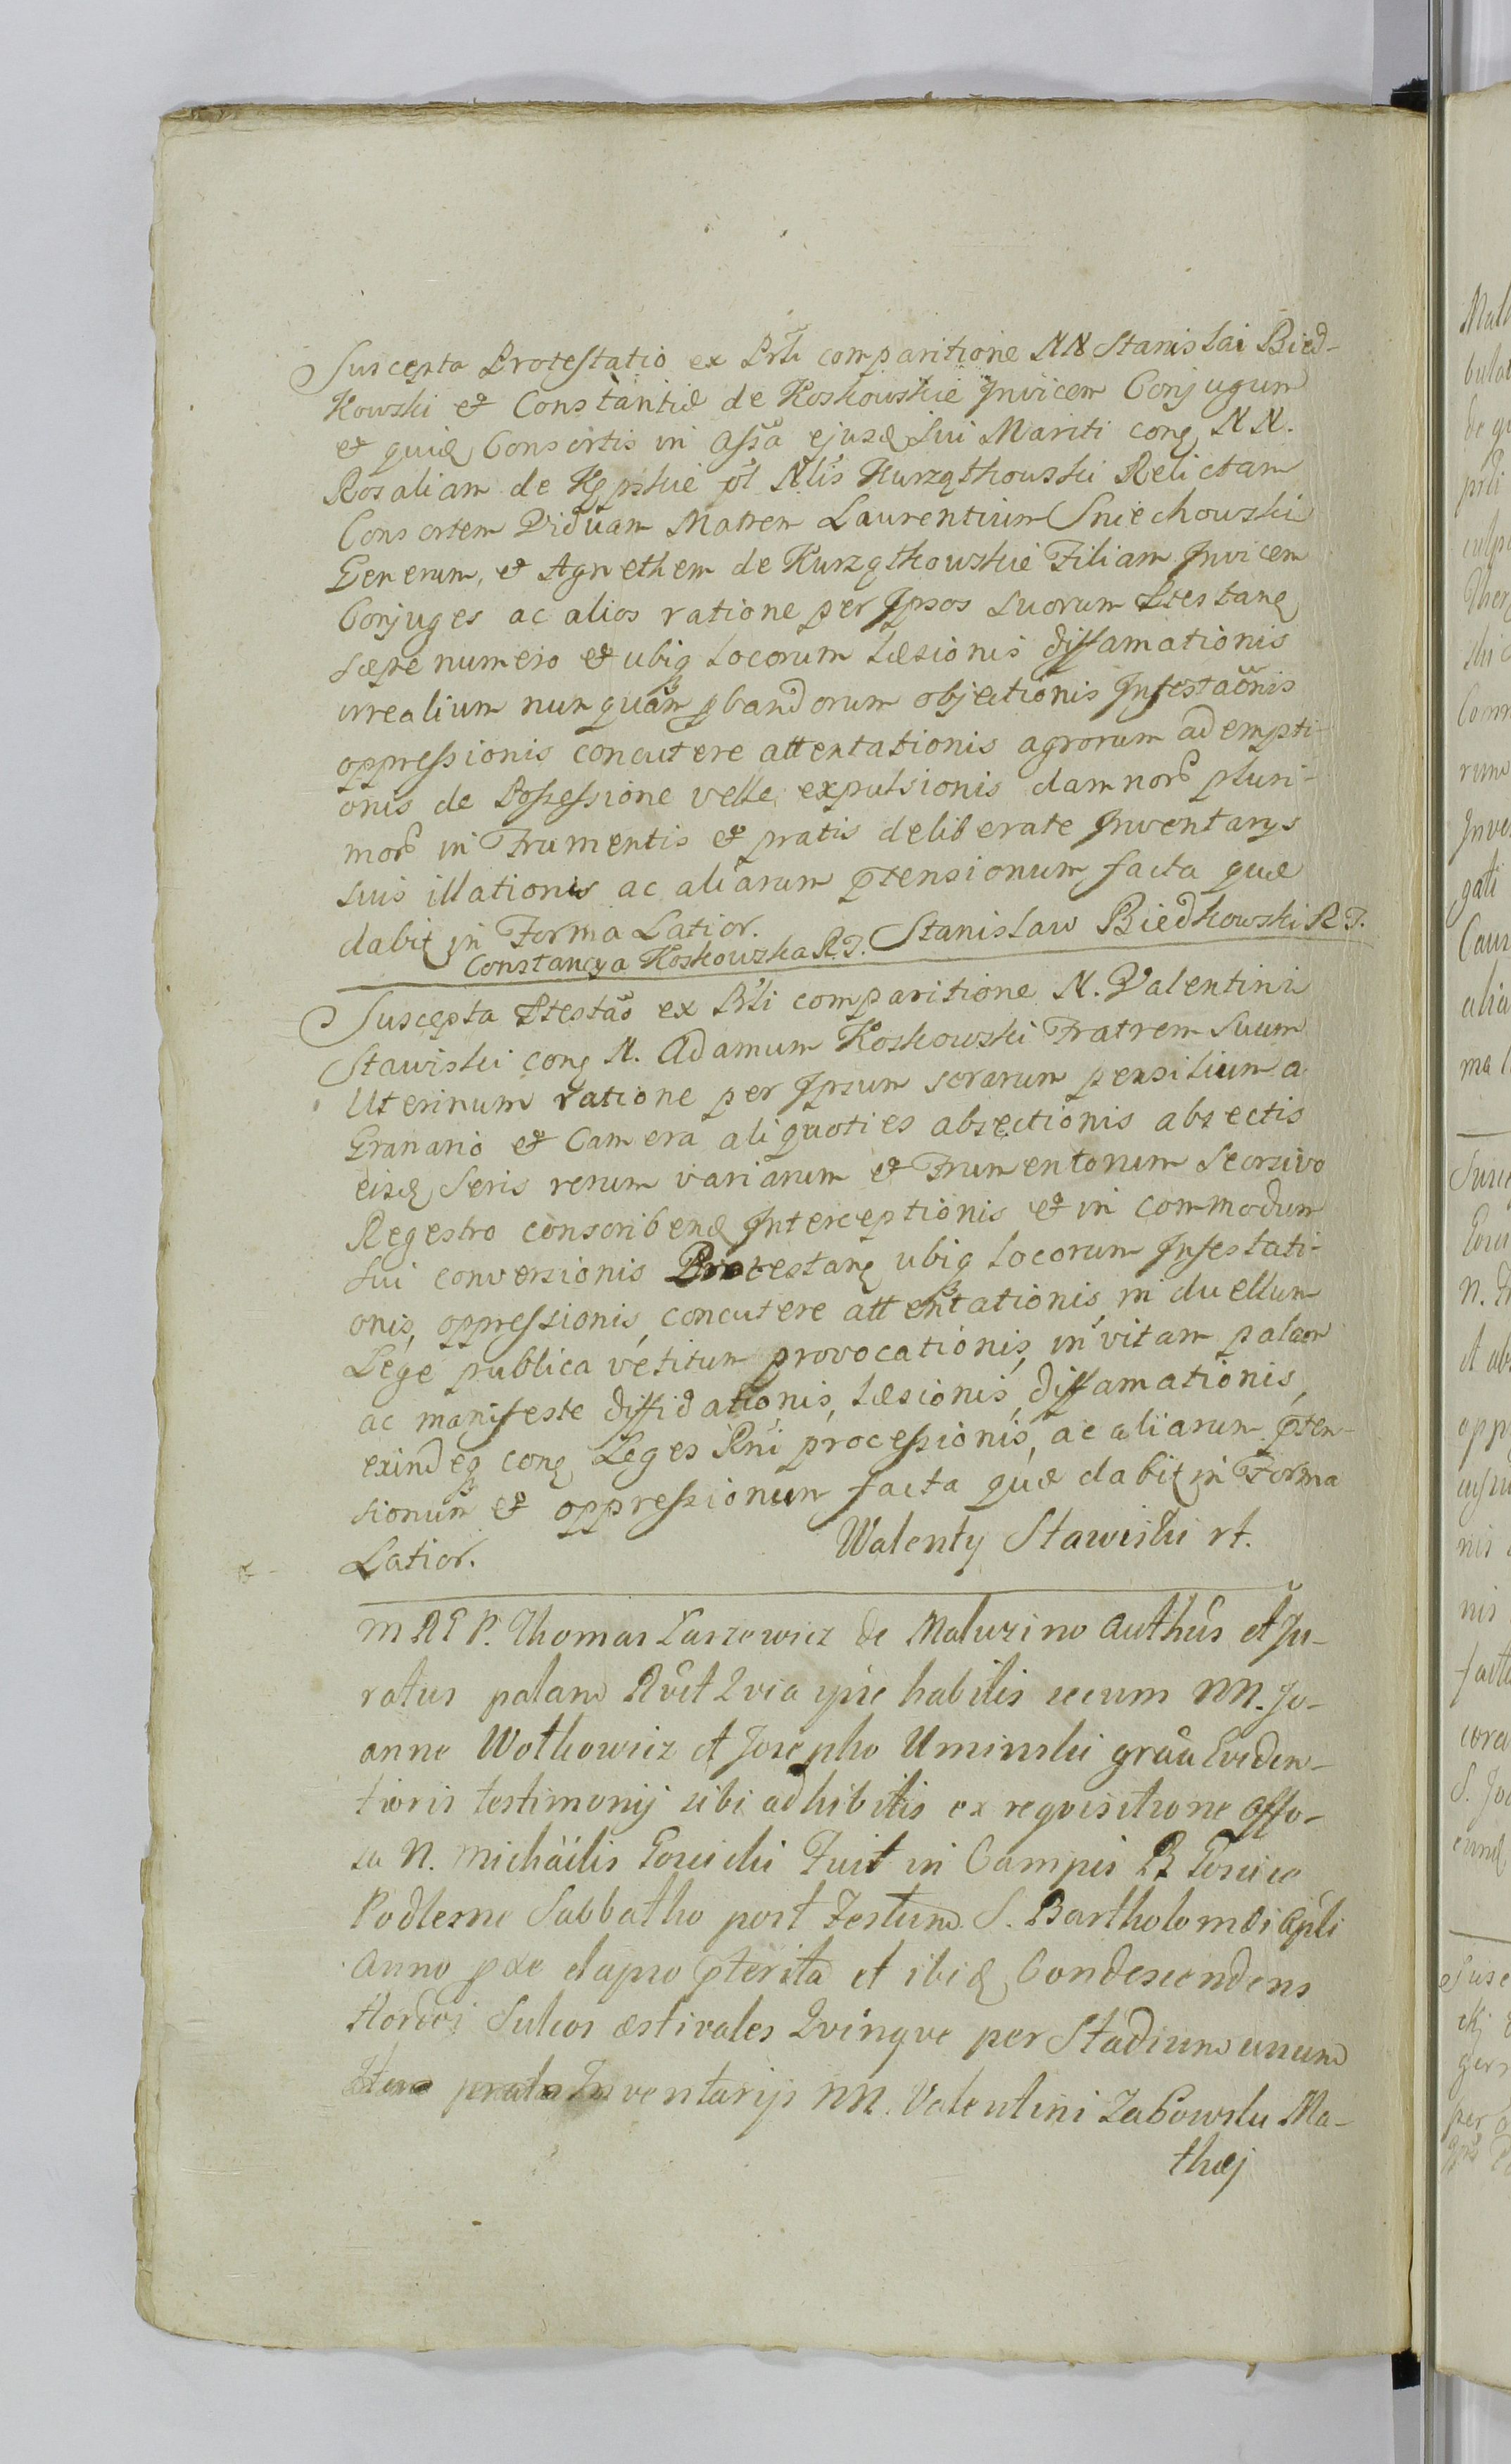 Suscepta Protestatio ex Prłi comparitione NN Stanislai Bied-
kowski et Constantiæ de Koskowskie Invicem Conjugum
et quidę Consortis in Assa ejusdę sui Mariti cong NN.
Rosaliam de Kępskie ol Nlis Kurzątkowski Relictam
Consortem Viduam Matrem Laurentium Sniechowski
Generum, et Agnethem de Kurzątkowskie Filiam Invicem
Conjuges ac alios ratione per Ipsos suorum Ptestang
sæpe numero et ubiq locorum læsionis diffamationis
irrealium nunquam pbandorum objectionis Infestaõnis
oppressionis concutere attentationis agrorum adempti-
onis de Possessione velle expulsionis damnor pluri-
mor in Frumentis et pratis deliberate Inventarys
suis illationis ac aliarum ptensionum facta quæ
dabit in Forma Latior.
Constancya Koskowska R.T. Stanislaw Biedkowski R.T.
Suscepta Ptestao ex Prłi comparitione N. Valentini
Stawiski cong N. Adamum Koskowski Fratrem Suum
Uterinum ratione per Ipsum serarum pensilium a
Granario et Camera aliquoties absectionis absectis
eisdę Seris rerum variarum et Frumentorum Seorsivo
Regestro conscribendę Interceptionis et in commodum
sui conversionis Protestang ubiq locorum Infestati-
onis, oppressionis, concutere attentationis, in duellum
Lege publica vetitum provocationis, in vitam palam
ac manifeste diffidationis, læsionis, diffamationis,
exindeq cong Leges Rni processionis, ac aliarum pten-
sionum et oppressionum facta quæ dabit in Forma
Latior. Walenty Stawiski rt.
M RGP. Thomas Laszewicz de Maluzino authus et Ju-
ratus palam Rvit Qvia ipse habitis secum NN. Jo-
anne Wothowicz et Josepho Uminski graa Eviden-
tioris testimonij sibi adhibitis ex reqvisitione Offo-
sa N. Michäelis Gosicki Fuit in Campis B Gosice
Podlesne Sabbatho post Festum S. Bartholomæi Apli
Anno pxe elapso pterita et ibidę Condescendens
Hordei Sulcos æstivales Qvinqve per Stadium unum
Item prata Inventarijs NN. Valentini Zabowski Ma-
thæj